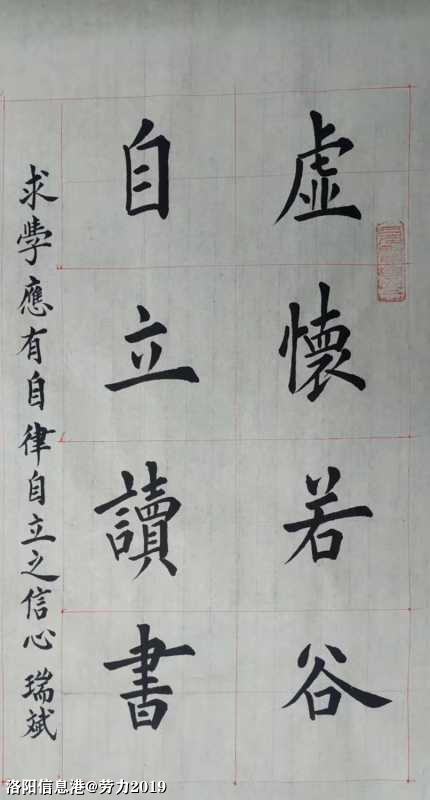 虛懷若谷
自立讀書
求學應有自律自立之信心 瑞斌
洛阳信息港@劳力2019